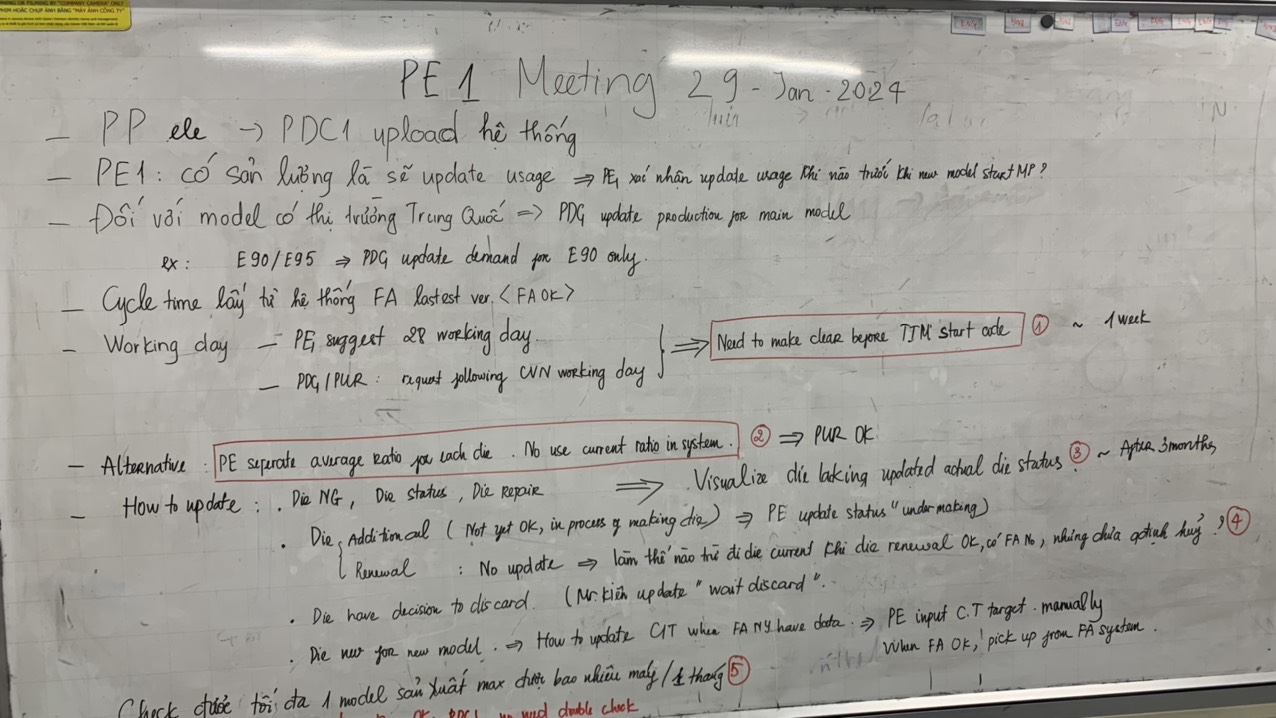 PHIM HOẶC CHỤP ẢNH BẰNG "MÁY ẢNH CÔNG TY"
PE1 Meeting 29-Jan-2024
- PP ele → PDC1 upload hệ thống
- PE1: có sản lượng là sẽ update usage ⇒ PE1 xác nhận update usage khi nào trước khi new model start MP?
- Đối với model có thị trường Trung Quốc ⇒ PDG update production for main model
ex: E90/E95 ⇒ PDG update demand for E90 only.
- Cycle time lấy từ hệ thống FA lastest ver. <FA OK>
- Working day - PE1 suggest 28 working day.
- PDG/PUR: request following CVN working day
⇒ Need to make clear before TJM start code ① ~ 1 week
- Alternative: PE seperate average ratio for each die. No use current ratio in system. ② ⇒ PUR OK!
- How to update: . Die NG, Die status, Die Repair ⇒ Visualize die laking updated actual die status? ③ ~ After 3 months
. Die { Additional (Not yet OK, in process of making die) ⇒ PE update status "under making)
Renewal : No update ⇒ làm thế nào trừ đi die current khi die renewal OK, có FA No, nhưng chưa qđịnh huỷ? ④
. Die have decision to discard. (Mr. Kiên update "wait discard".
. Die new for new model. ⇒ How to update C/T when FA NY have data. ⇒ PE input C.T target. manually
When FA OK, pick up from FA system.
Check được tối đa 1 model sản xuất max được bao nhiêu máy/1 tháng ⑤
OK, PDC1 double check